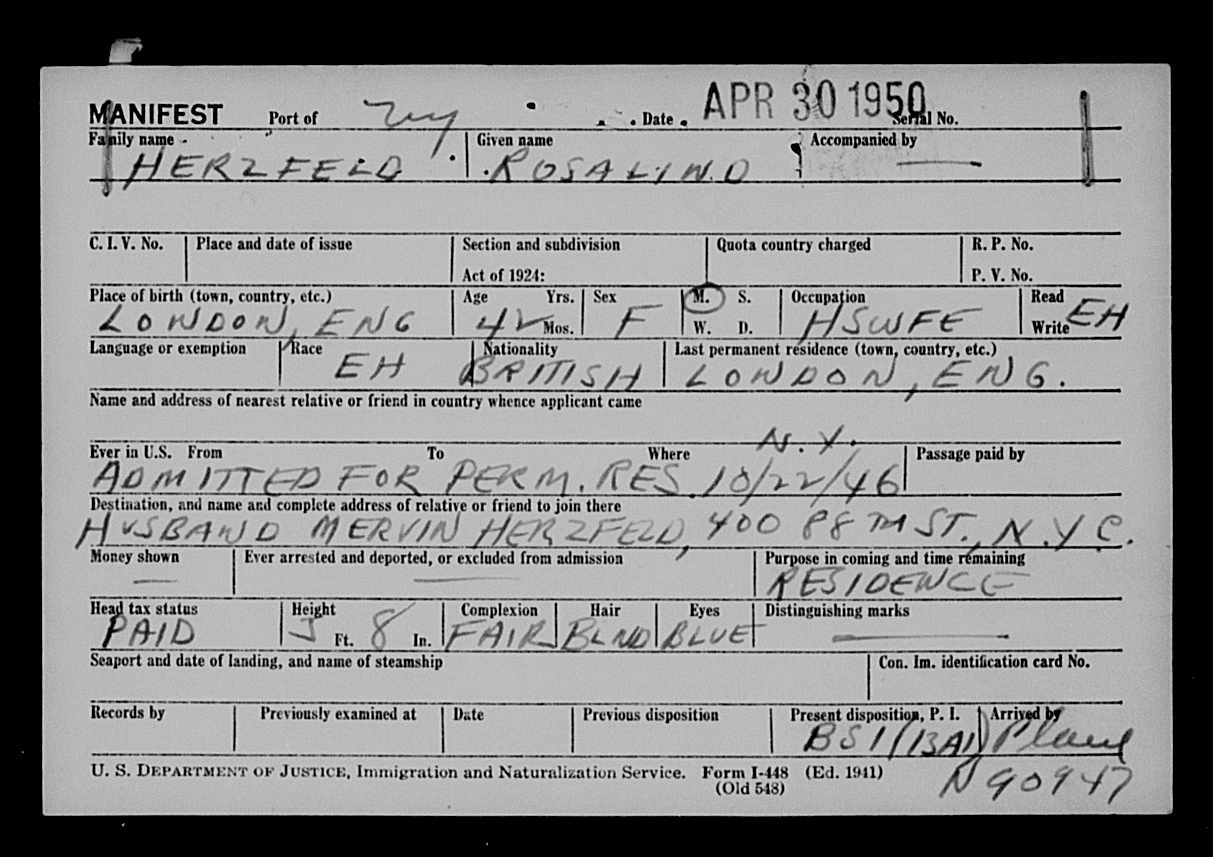 MANIFEST Port of Date APR 30 1950 Serial No.
Family name Given name Accompanied by
HERZFELD ROSALIND —
C. I. V. No. Place and date of issue Section and subdivision Quota country charged R. P. No.
Act of 1924: P. V. No.
Place of birth (town, country, etc.) Age Yrs. Sex M. S. Occupation Read
LONDON, ENG 42 Mos. F W. D. HSWFE Write EH
Language or exemption Race Nationality Last permanent residence (town, country, etc.)
EH BRITISH LONDON, ENG.
Name and address of nearest relative or friend in country whence applicant came
N.Y.
Ever in U.S. From To Where Passage paid by
ADMITTED FOR PERM. RES. 10/22/46
Destination, and name and complete address of relative or friend to join there
HUSBAND MERVIN HERZFELD, 400 88TH ST., N.Y.C.
Money shown Ever arrested and deported, or excluded from admission Purpose in coming and time remaining
— — RESIDENCE
Head tax status Height Complexion Hair Eyes Distinguishing marks
PAID 5 Ft. 8 In. FAIR BLND BLUE —
Seaport and date of landing, and name of steamship Con. Im. identification card No.
Records by Previously examined at Date Previous disposition Present disposition, P. I. Arrived by
BSI (BAI) Plane
U. S. DEPARTMENT OF JUSTICE, Immigration and Naturalization Service. Form I-448 (Ed. 1941)
(Old 548)
N90947